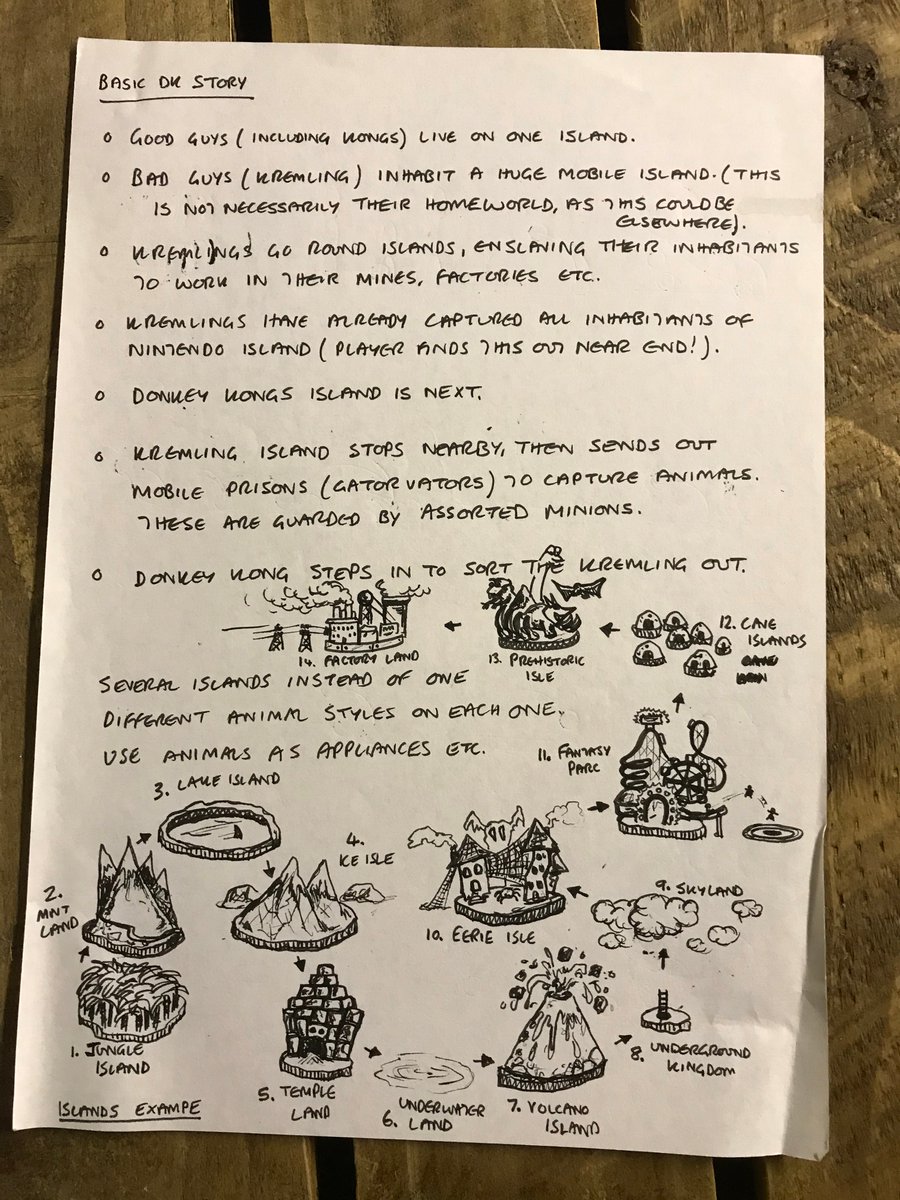 BASIC DK STORY
o GOOD GUYS (INCLUDING KONGS) LIVE ON ONE ISLAND.
o BAD GUYS (KREMLING) INHABIT A HUGE MOBILE ISLAND. (THIS
IS NOT NECESSARILY THEIR HOMEWORLD, AS THIS COULD BE
ELSEWHERE).
o KREMLINGS GO ROUND ISLANDS, ENSLAVING THEIR INHABITANTS
TO WORK IN THEIR MINES, FACTORIES ETC.
o KREMLINGS HAVE ALREADY CAPTURED ALL INHABITANTS OF
NINTENDO ISLAND (PLAYER FINDS THIS OUT NEAR END!).
o DONKEY KONGS ISLAND IS NEXT.
o KREMLING ISLAND STOPS NEARBY, THEN SENDS OUT
MOBILE PRISONS (GATORVATORS) TO CAPTURE ANIMALS.
THESE ARE GUARDED BY ASSORTED MINIONS.
o DONKEY KONG STEPS IN TO SORT THE KREMLING OUT.
14. FACTORY LAND
13. PREHISTORIC
ISLE
12. CAVE
ISLANDS
SEVERAL ISLANDS INSTEAD OF ONE
DIFFERENT ANIMAL STYLES ON EACH ONE.
USE ANIMALS AS APPLIANCES ETC.
11. FANTASY
PARC
3. LAKE ISLAND
4.
ICE ISLE
2.
MNT
LAND
10. EERIE ISLE
9. SKYLAND
1. JUNGLE
ISLAND
5. TEMPLE
LAND
UNDERWATER
6. LAND
7. VOLCANO
ISLAND
8. UNDERGROUND
KINGDOM
ISLANDS EXAMPE